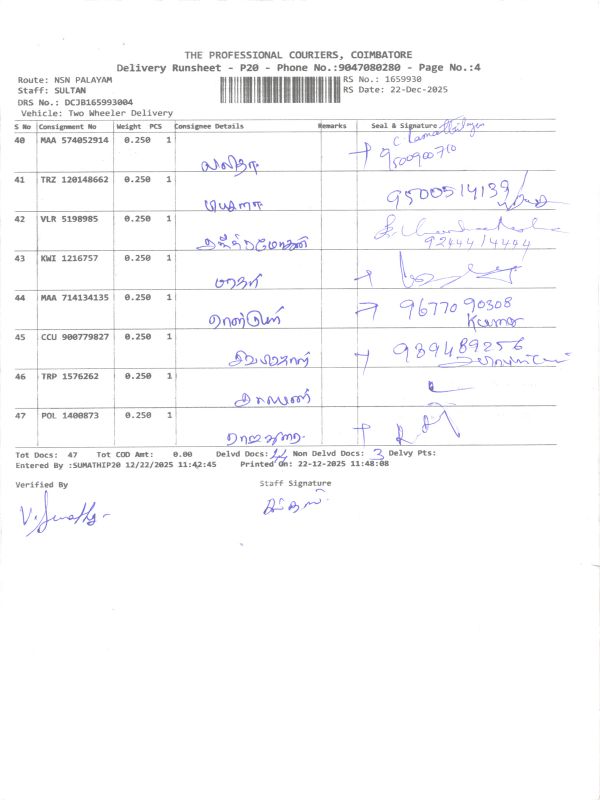 THE PROFESSIONAL COURIERS, COIMBATORE
Delivery Runsheet - P20 - Phone No.:9047080280 - Page No.:4
Route: NSN PALAYAM
RS No.: 1659930
Staff: SULTAN
RS Date: 22-Dec-2025
DRS No.: DCJB165993004
Vehicle: Two Wheeler Delivery
S No Consignment No Weight PCS Consignee Details Remarks Seal & Signature
40 MAA 574052914 0.250 1
9500900710
41 TRZ 120148662 0.250 1
9500514139
42 VLR 5198985 0.250 1
9244414444
43 KWI 1216757 0.250 1
44 MAA 714134135 0.250 1 9677090308
Kumar
45 CCU 900779827 0.250 1 989489256
46 TRP 1576262 0.250 1
47 POL 1400873 0.250 1
ராஜதுரை
Tot Docs: 47 Tot COD Amt: 0.00 Delvd Docs: 44 Non Delvd Docs: 3 Delvy Pts:
Entered By :SUMATHIP20 12/22/2025 11:42:45 Printed On: 22-12-2025 11:48:08
Verified By
Staff Signature